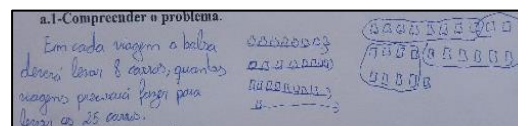 a.1-Compreender o problema.
Em cada viagem a balsa
deverá levar 8 carros, quantas
viagens precisará fazer para
levar os 25 carros.